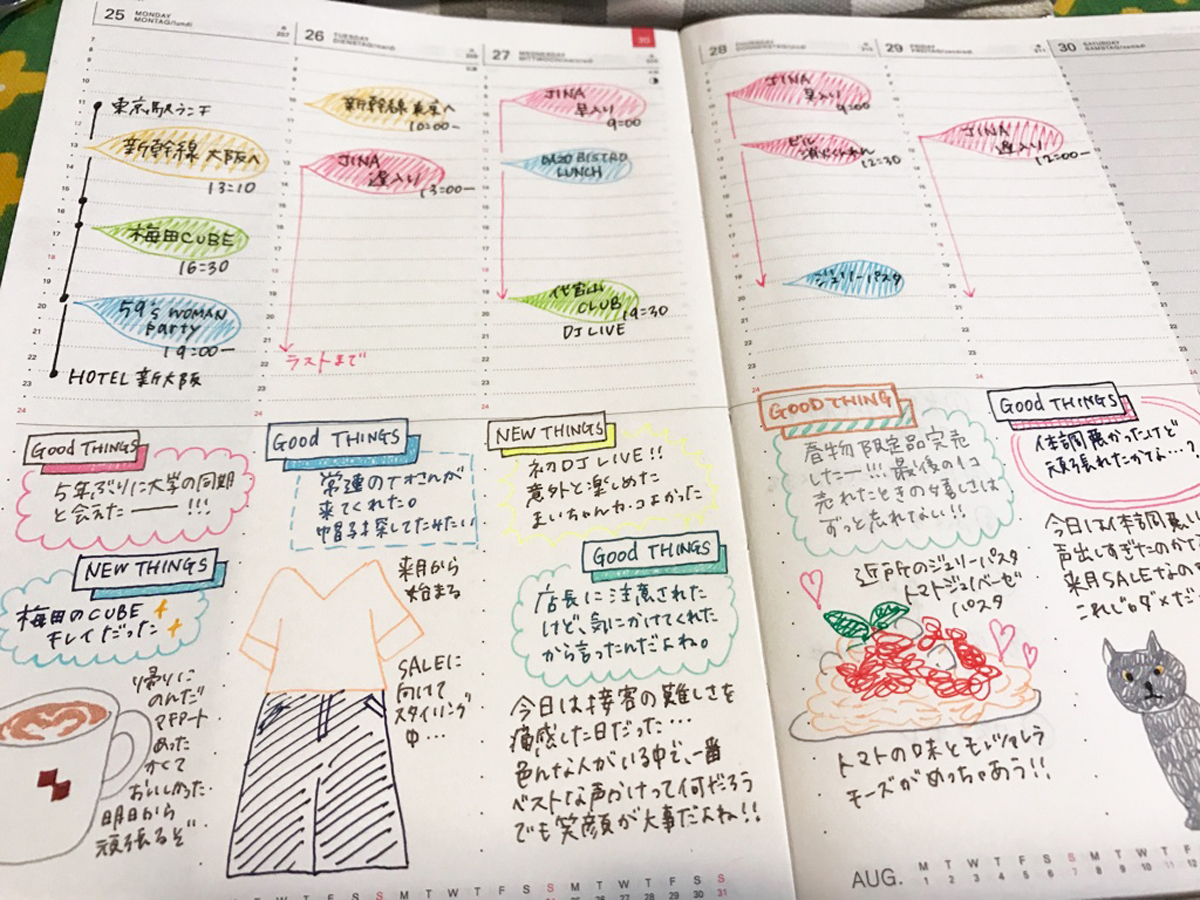 25 MONDAY
MONTAG/lundi
東京駅ランチ
新幹線 大阪へ
13:10
梅田CUBE
16:30
59's WOMAN
Party
19:00ー
HOTEL 新大阪
Good THINGS
5年ぶりに大学の同期
と会えたー!!!
NEW THINGS
梅田のCUBE
キレイだった
帰りに
のんだ
めった
かくて
おいしかった
明日から
頑張るぞ
26 TUESDAY
新幹線 東京へ
10:00ー
JINA
遅入り
13:00ー
ラストまで
Good THINGS
常連のTオさんが
来てくれた。
帽子を探してたみたい
来月から
始まる
SALEに
向けて
スタイリング
中…
27 WEDNESDAY
JINA
早入り
9:00
BISTRO
LUNCH
代官山
CLUB
19:30
DJ LIVE
NEW THINGS
初DJ LIVE!!
意外と楽しめた
まいちゃんカッコよかった
Good THINGS
店長に注意された
けど、気にかけてくれた
から言ったんだよね。
今日は接客の難しさを
痛感した日だった…
色んな人がいる中で、一番
ベストな声かけって何だろう
でも笑顔が大事だよね!!
28 THURSDAY
JINA
早入り
9:00
ビル
12:30
ジュリーパスタ
GOOD THING
春物限定品完売
したー!!! 最後の1コ
売れたときの嬉しさは
ずっと忘れない!!
近所のジュリーパスタ
トマトジェノベーゼ
パスタ
トマトの味とモッツァレラ
チーズがめっちゃあう!!
29 FRIDAY
JINA
遅入り
12:00ー
Good THINGS
体調悪かったけど
頑張れたかな…?
今日は体調悪い
声出しすぎたのかな
来月SALEなので
これじゃダメだ
30 SATURDAY
AUG.
M T W T F S S M T W T F
1 2 3 4 5 6 7 8 9 10 11 12